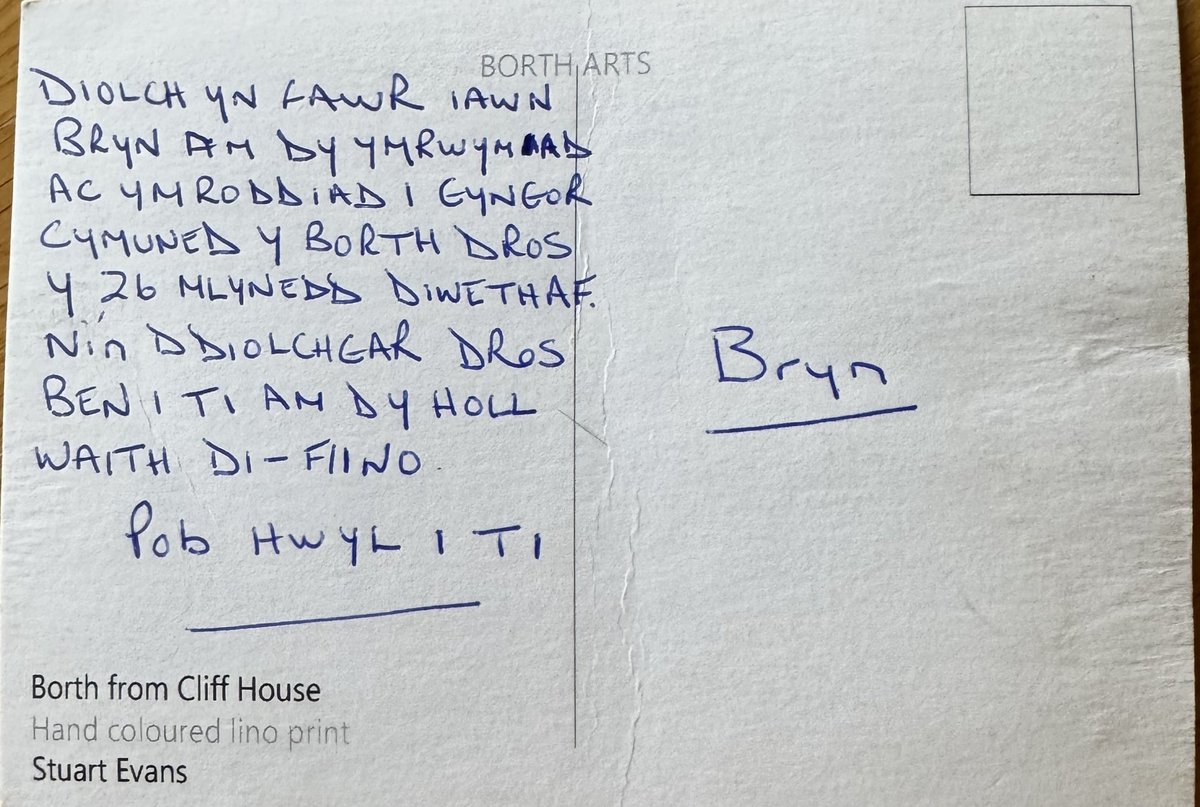 BORTH ARTS
DIOLCH YN FAWR IAWN
BRYN AM DY YMRWYMIAD
AC YMRODDIAD I GYNGOR
CYMUNED Y BORTH DROS
Y 26 MLYNEDD DIWETHAF.
Ni'n DDIOLCHGAR DROS
BEN I TI AM DY HOLL
WAITH DI-FIINO.
Pob HWYL I TI
Bryn
Borth from Cliff House
Hand coloured lino print
Stuart Evans